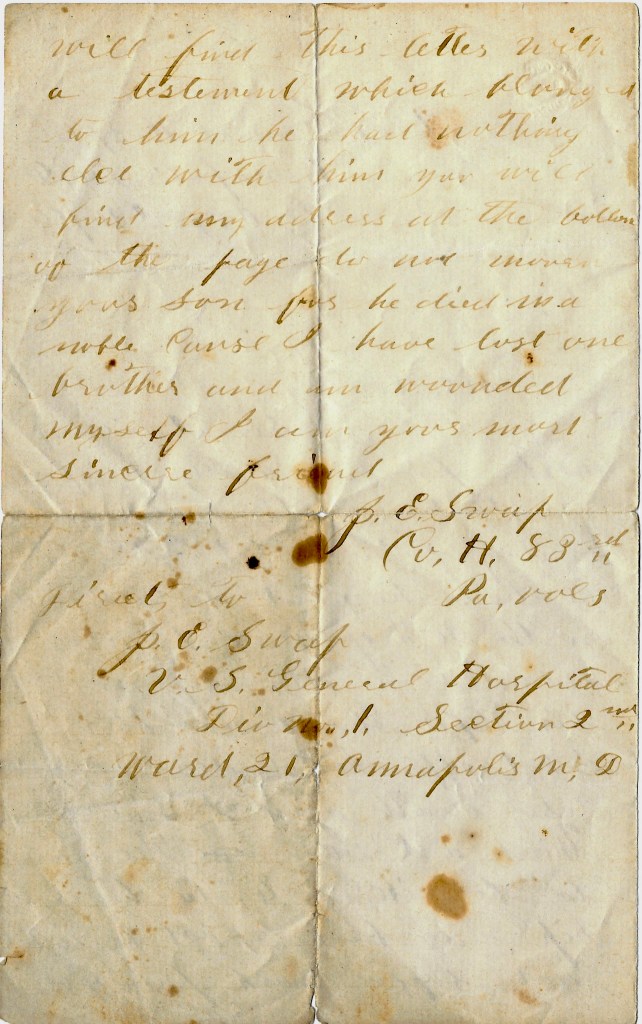 will find this letter with
a testement which belonged
to him he had nothing
else with him you will
find my adress at the bottom
of the page do not moorn
your son for he died in a
noble cause I have lost one
brother and am wounded
myself I am your most
sincere friend
J. E. Swap
Co, H. 83rd
Pa, vols
Direct, to
J. E. Swap
U. S. General Hospital
Div no, 1. Section 2nd
Ward, 21, Annapolis M, D